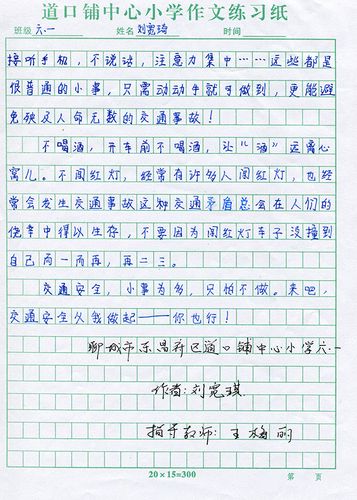 道口铺中心小学作文练习纸
班级 六.一 姓名 刘宽琦 时间
接听手机，不说话，注意力集中……这些都是
很普通的小事，只需动动手就可做到，更能避
免殃及人命无数的交通事故！
不喝酒，开车前不喝酒，让“酒”远离心
窝儿。不闯红灯，经常有许多人闯红灯，也经
常会发生交通事故这种交通矛盾总会在人们的
侥幸中得以生存，不要因为闯红灯车子没撞到
自己而一而再，再二三。
交通安全，小事为多，只怕不做。来吧，
交通安全从我做起——你也行！
聊城市东昌府区道口铺中心小学六.一
作者：刘宽琪
指导教师：王梅丽
20×15=300
第 页